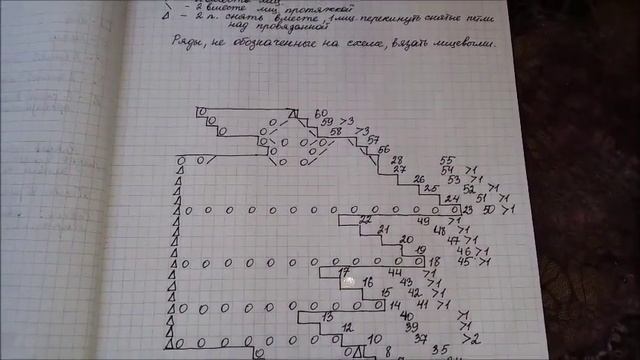 \ - 2 вместе лиц. протяжкой
Δ - 2 п. снять вместе, 1 лиц, перекинуть снятые петли
над провязанной
Ряды, не обозначенные на схеме, вязать лицевыми.
60
59 >3
58 >3
57
56
28 55
27 54 >1
26 53 >1
25 52 >1
24 51 >1
23 50 >1
22 49 >1
21 48 >1
20 47 >1
19 46 >1
18 45 >1
17 44 >1
16 43 >1
15 42 >1
14 41 >1
13 40 >1
12 39 >1
10 37 >2
8 35